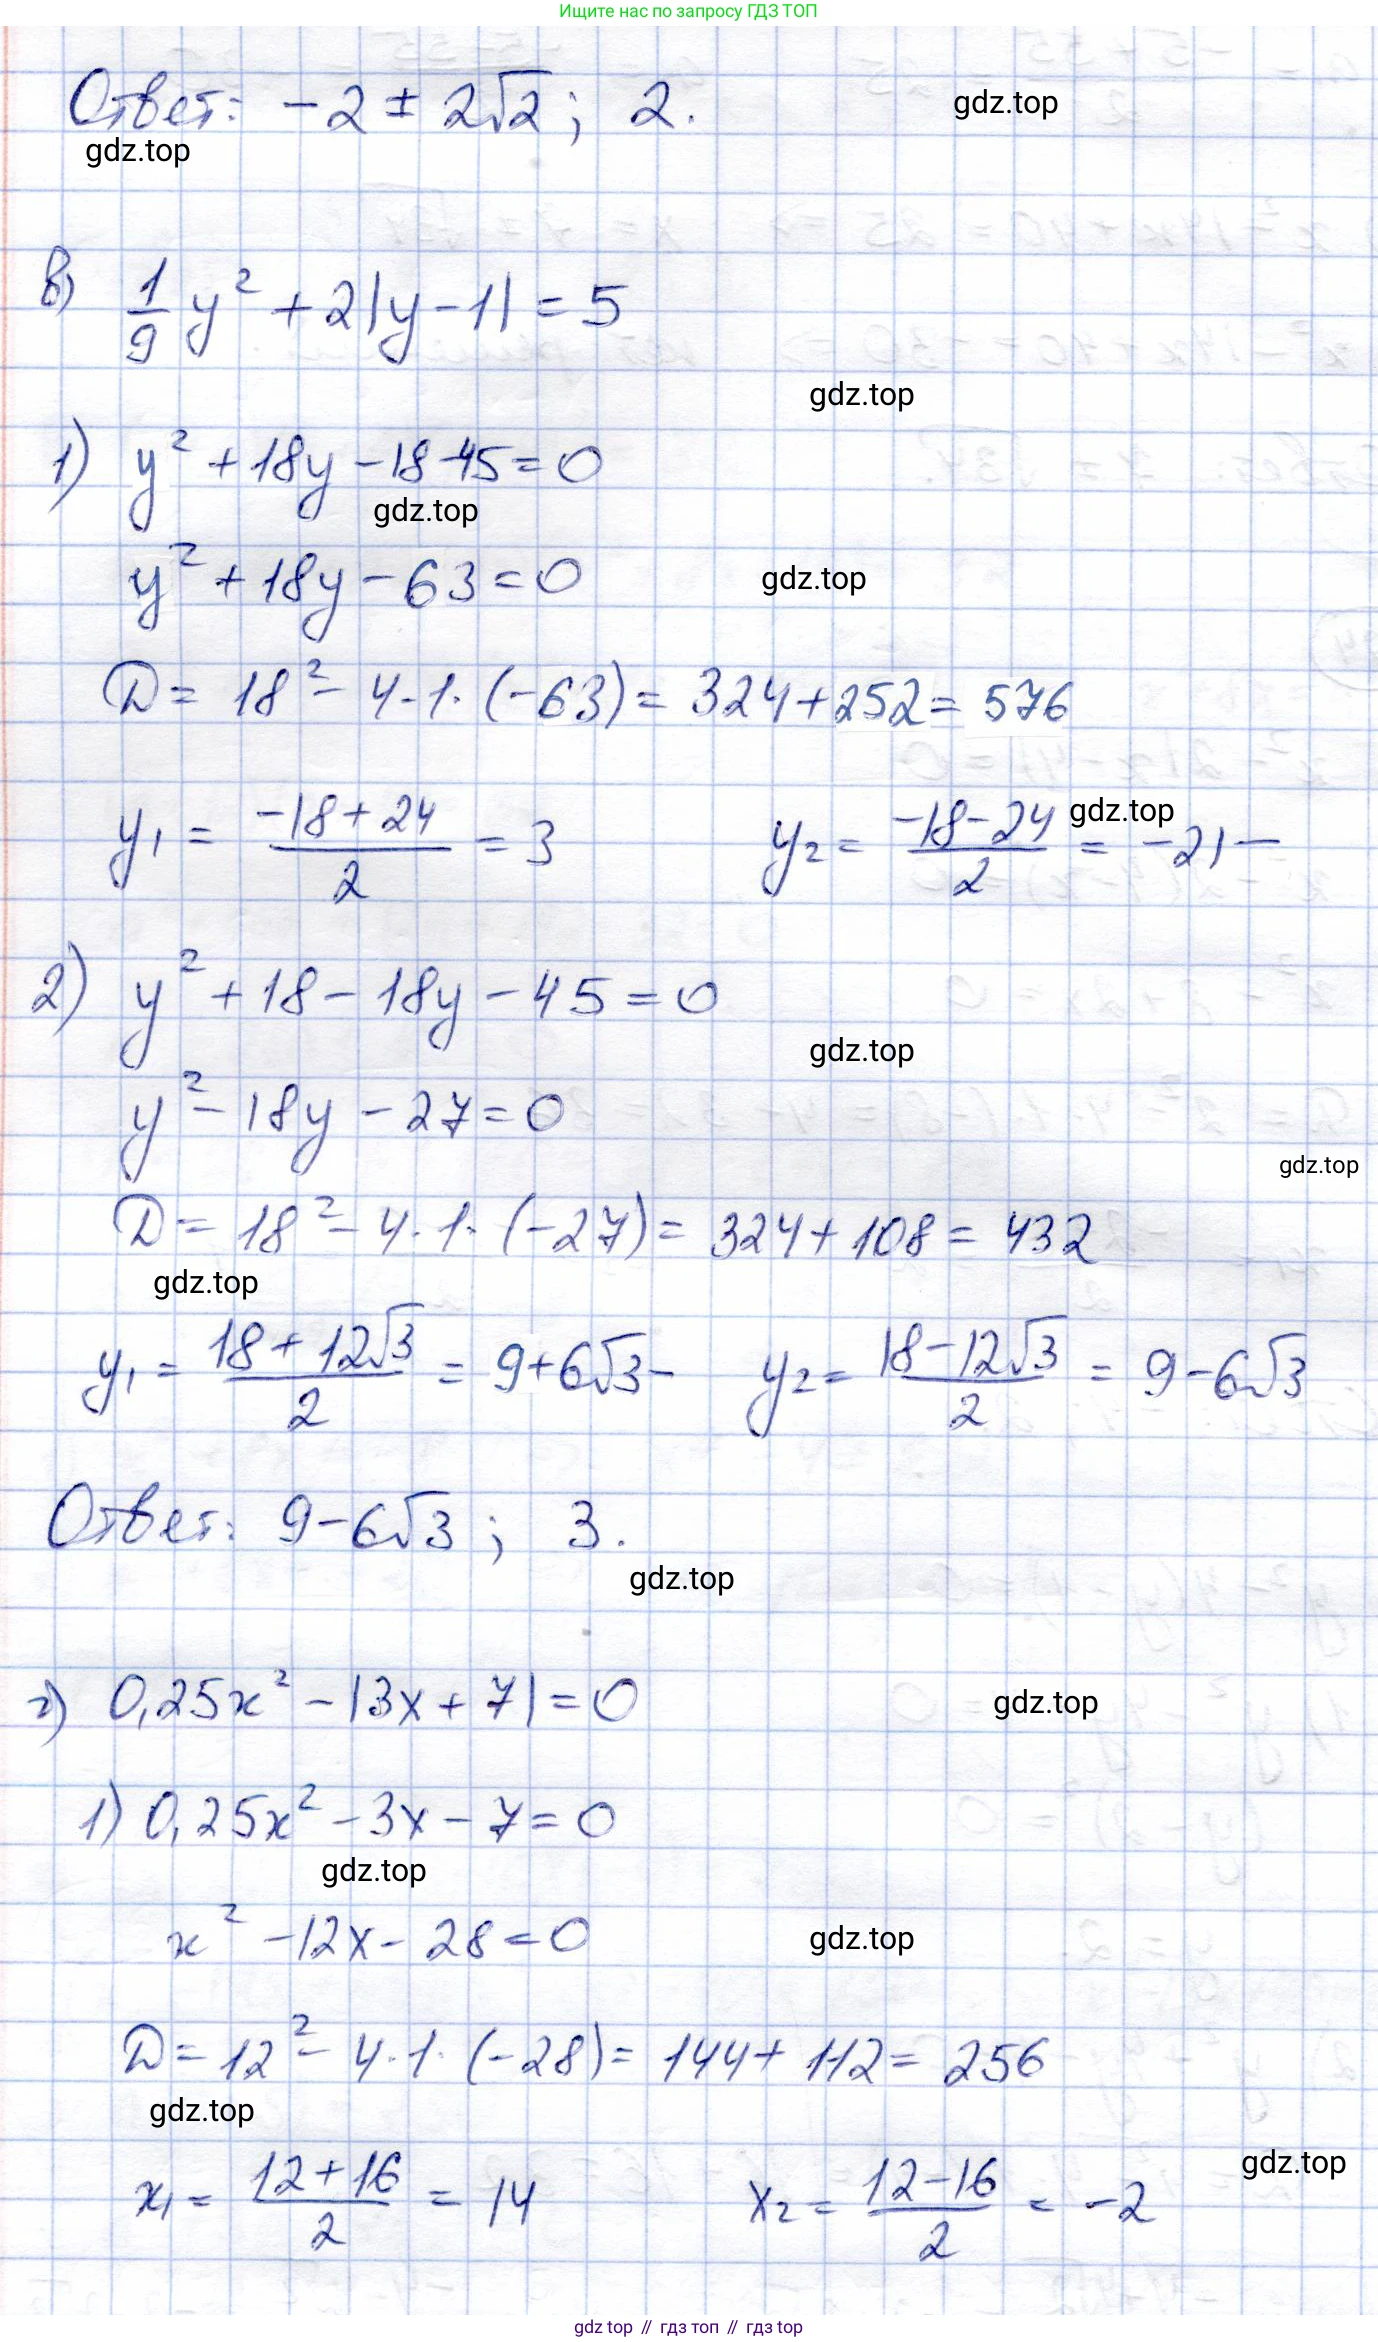 Ищите нас по запросу ГДЗ ТОП
Ответ: -2 ± 2√2; 2.
gdz.top
gdz.top
в) 1/9 y² + 2|y - 1| = 5
gdz.top
1) y² + 18y - 18 - 45 = 0
gdz.top
y² + 18y - 63 = 0
gdz.top
D = 18² - 4·1·(-63) = 324 + 252 = 576
y₁ = (-18 + 24)/2 = 3 y₂ = (-18 - 24)/2 = -21 -
gdz.top
2) y² + 18 - 18y - 45 = 0
gdz.top
y² - 18y - 27 = 0
gdz.top
D = 18² - 4·1·(-27) = 324 + 108 = 432
gdz.top
y₁ = (18 + 12√3)/2 = 9 + 6√3 - y₂ = (18 - 12√3)/2 = 9 - 6√3
Ответ: 9 - 6√3; 3.
gdz.top
г) 0,25x² - |3x + 7| = 0
gdz.top
1) 0,25x² - 3x - 7 = 0
gdz.top
x² - 12x - 28 = 0
gdz.top
D = 12² - 4·1·(-28) = 144 + 112 = 256
gdz.top
gdz.top
x₁ = (12 + 16)/2 = 14 x₂ = (12 - 16)/2 = -2
gdz top // гдз топ // гдз top